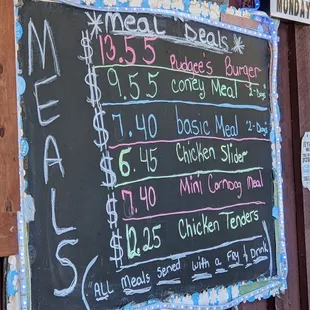 MEALS
*Meal Deals*
$13.55 Pudgee's Burger
$9.55 Coney Meal 2-Dogs
$7.40 basic Meal 2-Dogs
$6.45 Chicken Slider
$7.40 Mini Corndog Meal
$12.25 Chicken Tenders
(All Meals served with a Fry & Drink)
MONDAY